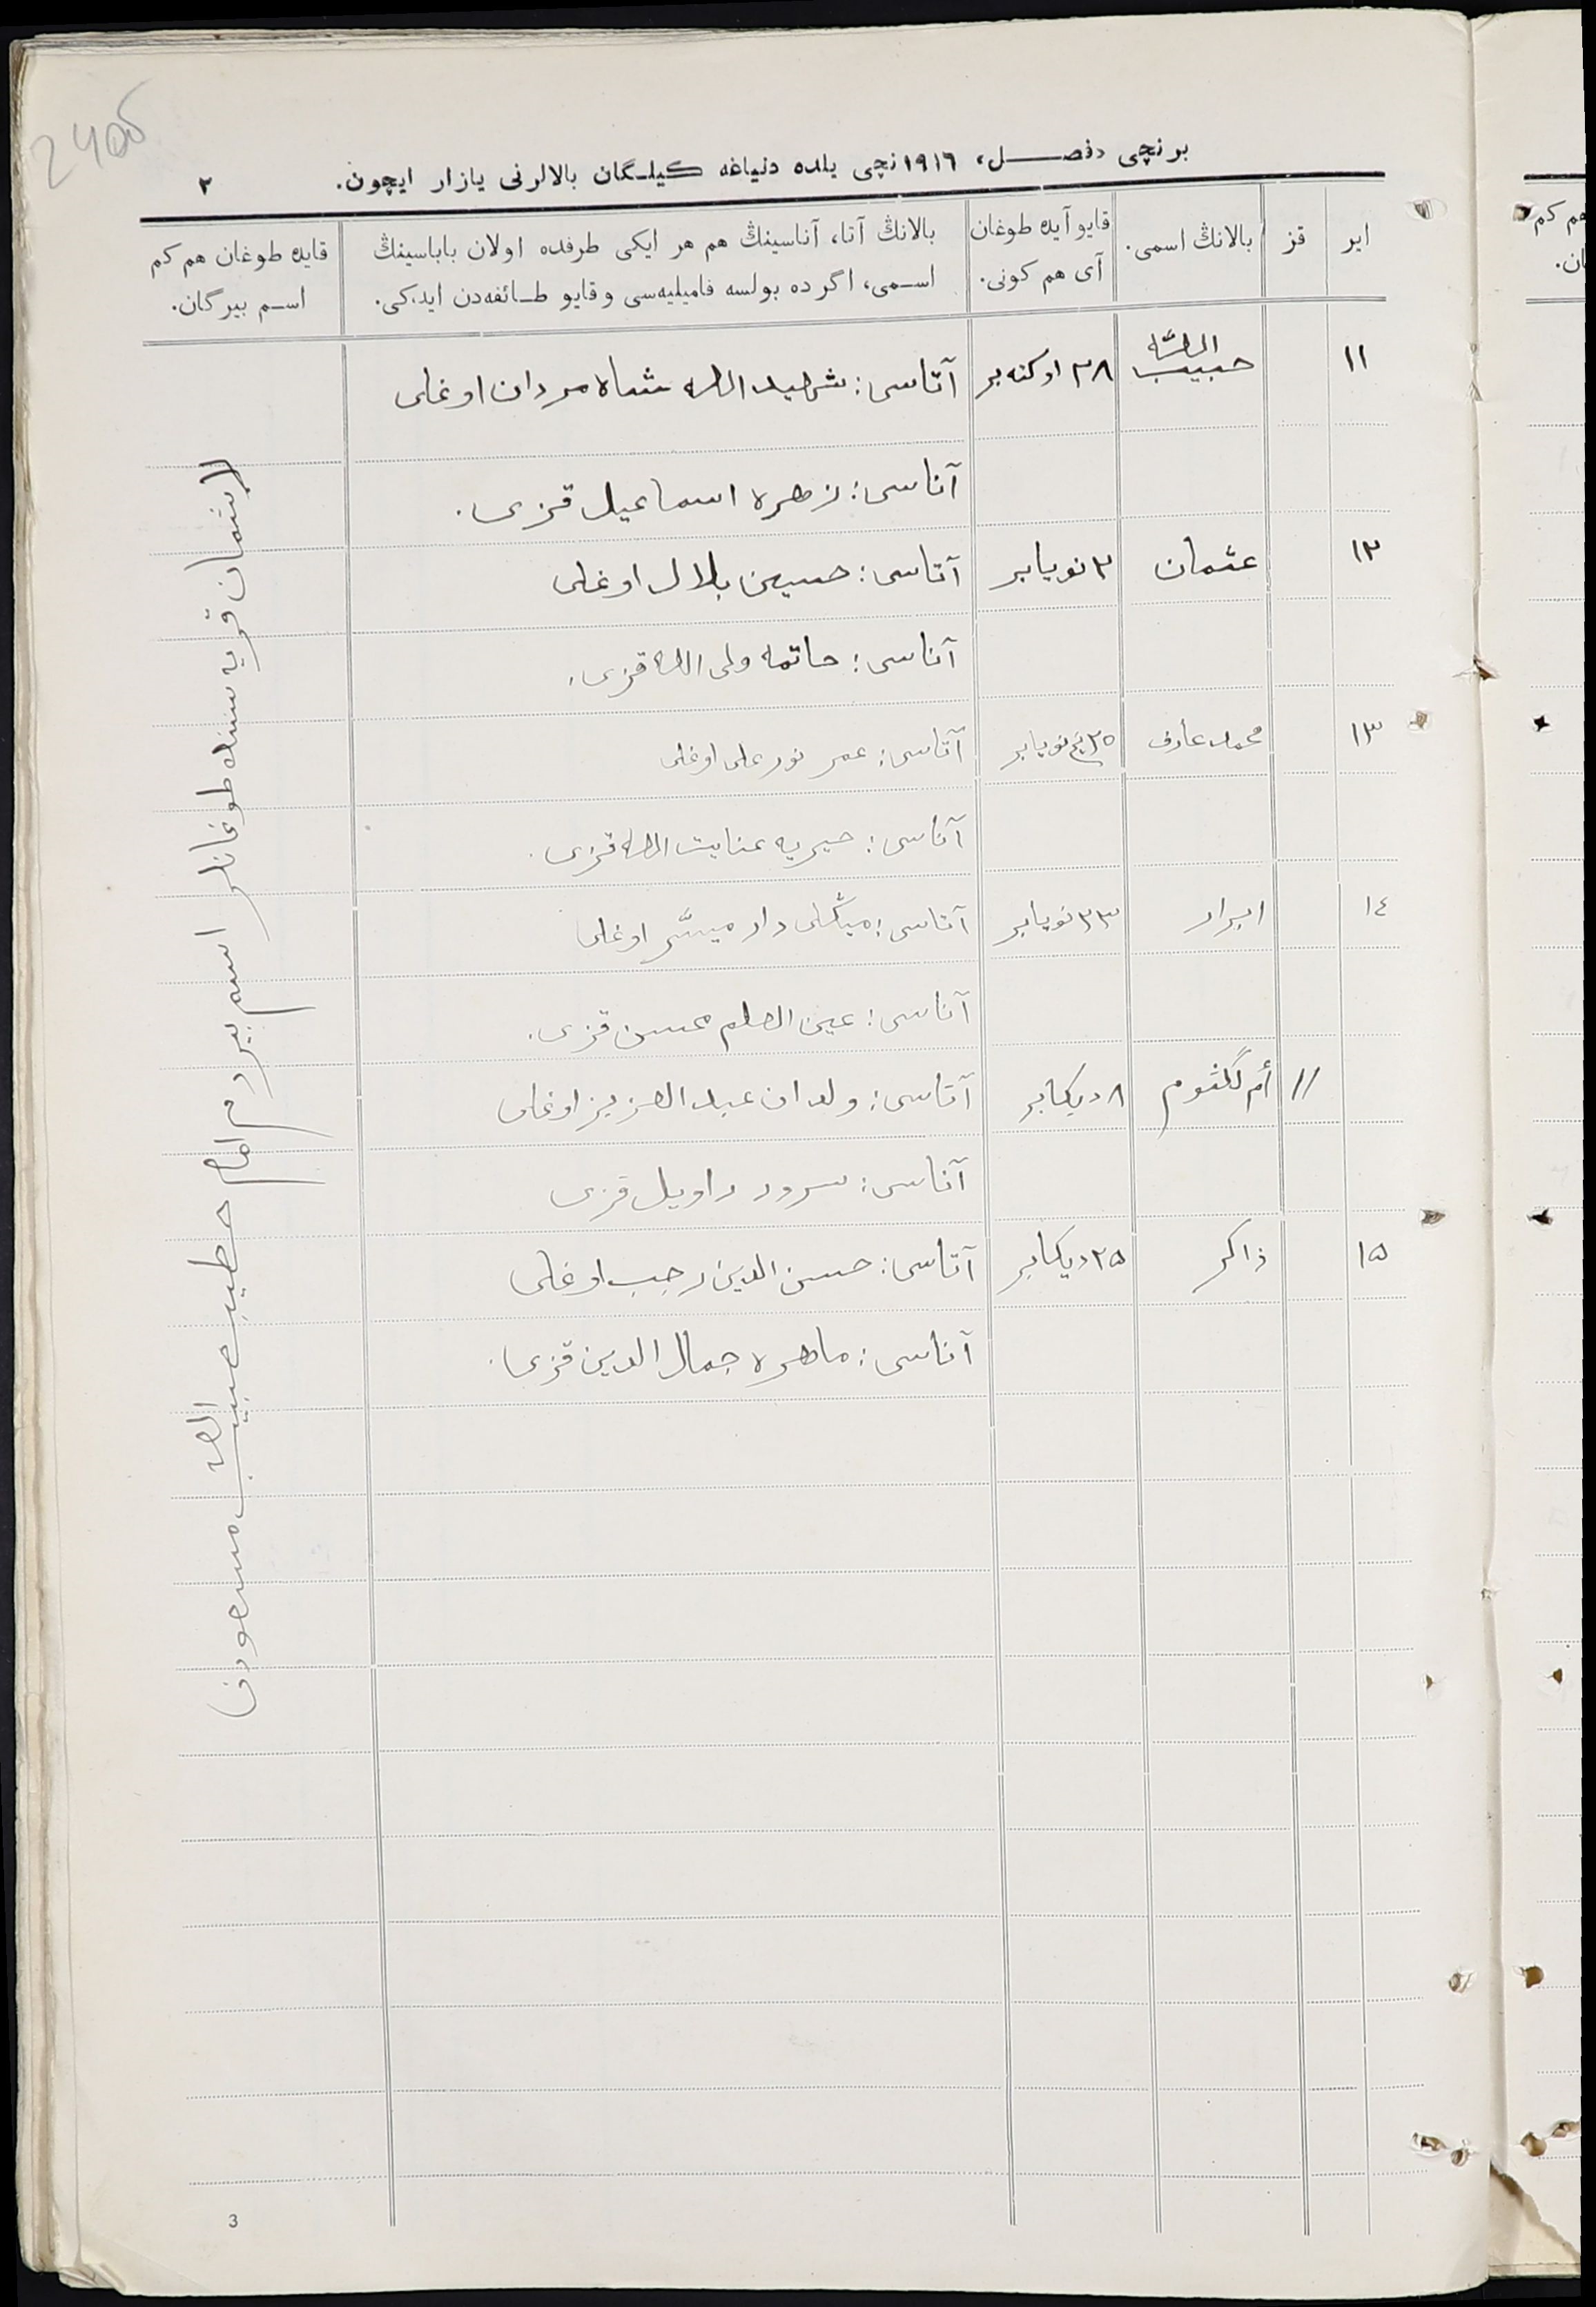 240об
برنچی «فصل» ١٩١٦نچی یلده دنیاغه کیلگان بالالرنی یازار ایچون. ٢
ایر
قز
بالانڭ اسمی.
قایو آیده طوغان
آی هم کونی.
بالانڭ آتا، آناسینڭ هم هر ایکی طرفده اولان باباسینڭ
اسمی، اگرده بولسه فامیلیه‌سی و قایو طائفه‌دن ایدکی.
قایده طوغان هم کم
اسم بیرگان.
١١ حبیب الله ٢٨ اوکتەبر آتاسی: شهید الله شاه مردان اوغلی
آناسی: زهره اسماعیل قزی.
١٢ عثمان ٢ نویابر آتاسی: حسین بلال اوغلی
آناسی: حاتمه ولی الله قزی.
١٣ محمد عارف ٢٥ نچی نویابر آتاسی: عمر نور علی اوغلی
آناسی: خیریه عنایت الله قزی.
١٤ ابرار ٢٣ نویابر آتاسی: میڭلی دار میسّر اوغلی
آناسی: عین العلم محسن قزی.
١١ أم گلثوم ٨ دیکابر آتاسی: ولدان عبد العزیز اوغلی
آناسی: سرور راویل قزی
١٥ ذاکر ٢٥ دیکابر آتاسی: حسن الدین رجب اوغلی
آناسی: ماهره جمال الدین قزی.
قریه سنده طوغانلر اسم بیردم امام خطیب حبیب الله مسعودف
3
هم کم
ان.